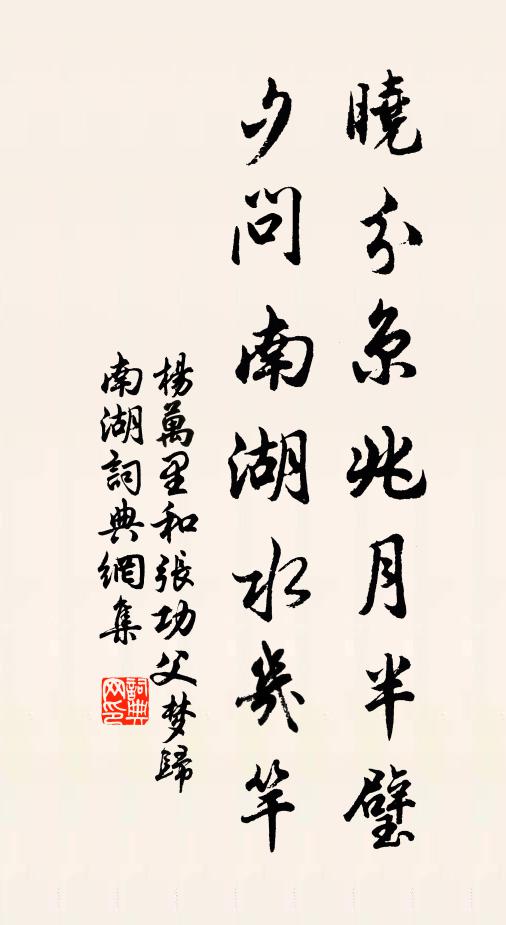 曉分京兆月半璧
夕問南湖水幾竿
楊萬里和張功父梦歸
南湖詞典網集
詞典
网印